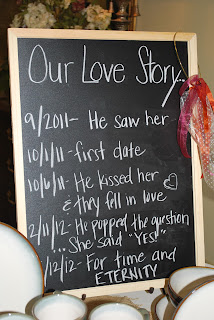 Our Love Story...
9/2011- He saw her
10/1/11- first date
10/6/11- He kissed her
& they fell in love
2/11/12- He popped the question
...She said "YES!"
/12/12- For time and
ETERNITY